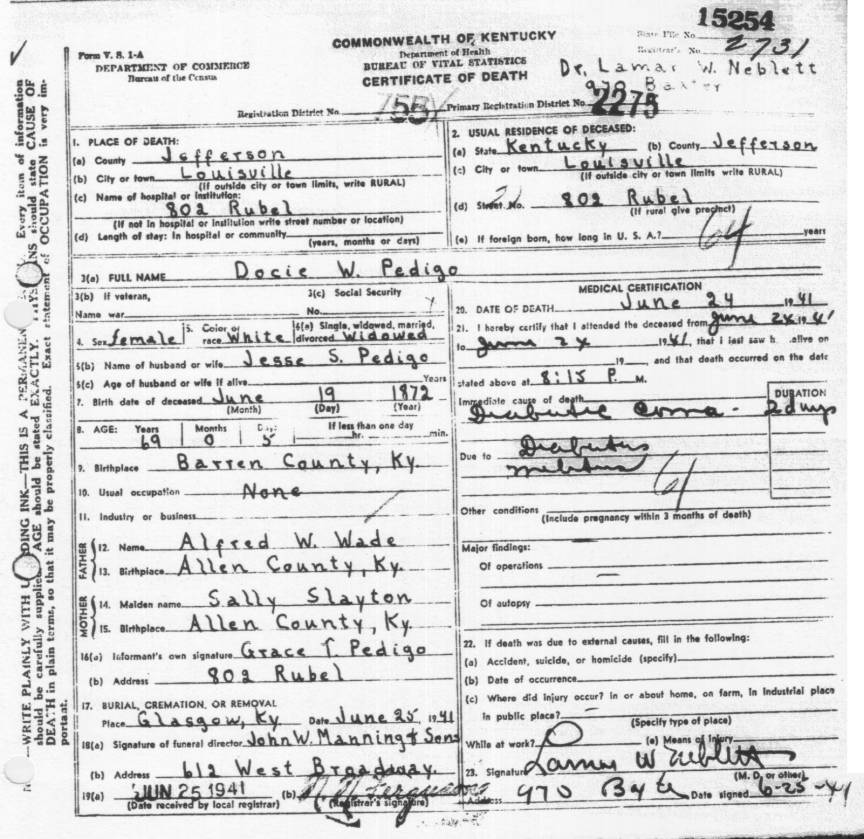 15254
State File No.
Registrar's No. 2731
COMMONWEALTH OF KENTUCKY
Department of Health
BUREAU OF VITAL STATISTICS
CERTIFICATE OF DEATH
Form V. S. 1-A
DEPARTMENT OF COMMERCE
Bureau of the Census
Dr. Lamar W. Neblett
970 Baxter
Registration District No. 755 Primary Registration District No. 2275
1. PLACE OF DEATH:
(a) County Jefferson
(b) City or town Louisville
(If outside city or town limits, write RURAL)
(c) Name of hospital or institution:
802 Rubel
(If not in hospital or institution write street number or location)
(d) Length of stay: In hospital or community
(years, months or days)
2. USUAL RESIDENCE OF DECEASED:
(a) State Kentucky (b) County Jefferson
(c) City or town Louisville
(If outside city or town limits, write RURAL)
(d) Street No. 802 Rubel
(If rural give precinct)
(e) If foreign born, how long in U. S. A.? years
64
3(a) FULL NAME Docie W. Pedigo
3(b) If veteran,
Name war
3(c) Social Security
No.
4. Sex female 5. Color or race White 6(a) Single, widowed, married, divorced Widowed
6(b) Name of husband or wife Jesse S. Pedigo
6(c) Age of husband or wife if alive Years
7. Birth date of deceased June 19 1872
(Month) (Day) (Year)
8. AGE: Years Months Days If less than one day
69 0 5 hr. min.
9. Birthplace Barren County, Ky.
10. Usual occupation None
11. Industry or business
FATHER
12. Name Alfred W. Wade
13. Birthplace Allen County, Ky.
MOTHER
14. Maiden name Sally Slayton
15. Birthplace Allen County, Ky
16(a) Informant's own signature Grace T. Pedigo
(b) Address 802 Rubel
17. BURIAL, CREMATION, OR REMOVAL
Place Glasgow, Ky Date June 25, 1941
18(a) Signature of funeral director John W. Manning & Sons
(b) Address 612 West Broadway.
19(a) JUN 25 1941 (b)
(Date received by local registrar) (Registrar's signature)
MEDICAL CERTIFICATION
20. DATE OF DEATH June 24 1941
21. I hereby certify that I attended the deceased from June 24 1941
to June 24 1941, that I last saw h alive on
19 and that death occurred on the date
stated above at 8:15 P. M.
Immediate cause of death DURATION
Diabetic Coma - 2 days
Due to Diabetus
melitus
61
Other conditions
(Include pregnancy within 3 months of death)
Major findings:
Of operations
Of autopsy
22. If death was due to external causes, fill in the following:
(a) Accident, suicide, or homicide (specify)
(b) Date of occurrence
(c) Where did injury occur? in or about home, on farm, in industrial place
in public place?
(Specify type of place)
While at work? (e) Means of injury
23. Signature Lamar W Neblett
(M. D. or other)
Address 970 Date signed 6-25-41
WRITE PLAINLY WITH DING INK—THIS IS A PERMANEN Every item of information
should be carefully supplied. AGE should be stated EXACTLY. should state CAUSE OF
DEATH in plain terms, so that it may be properly classified. Exact statement of OCCUPATION is very im-
portant.